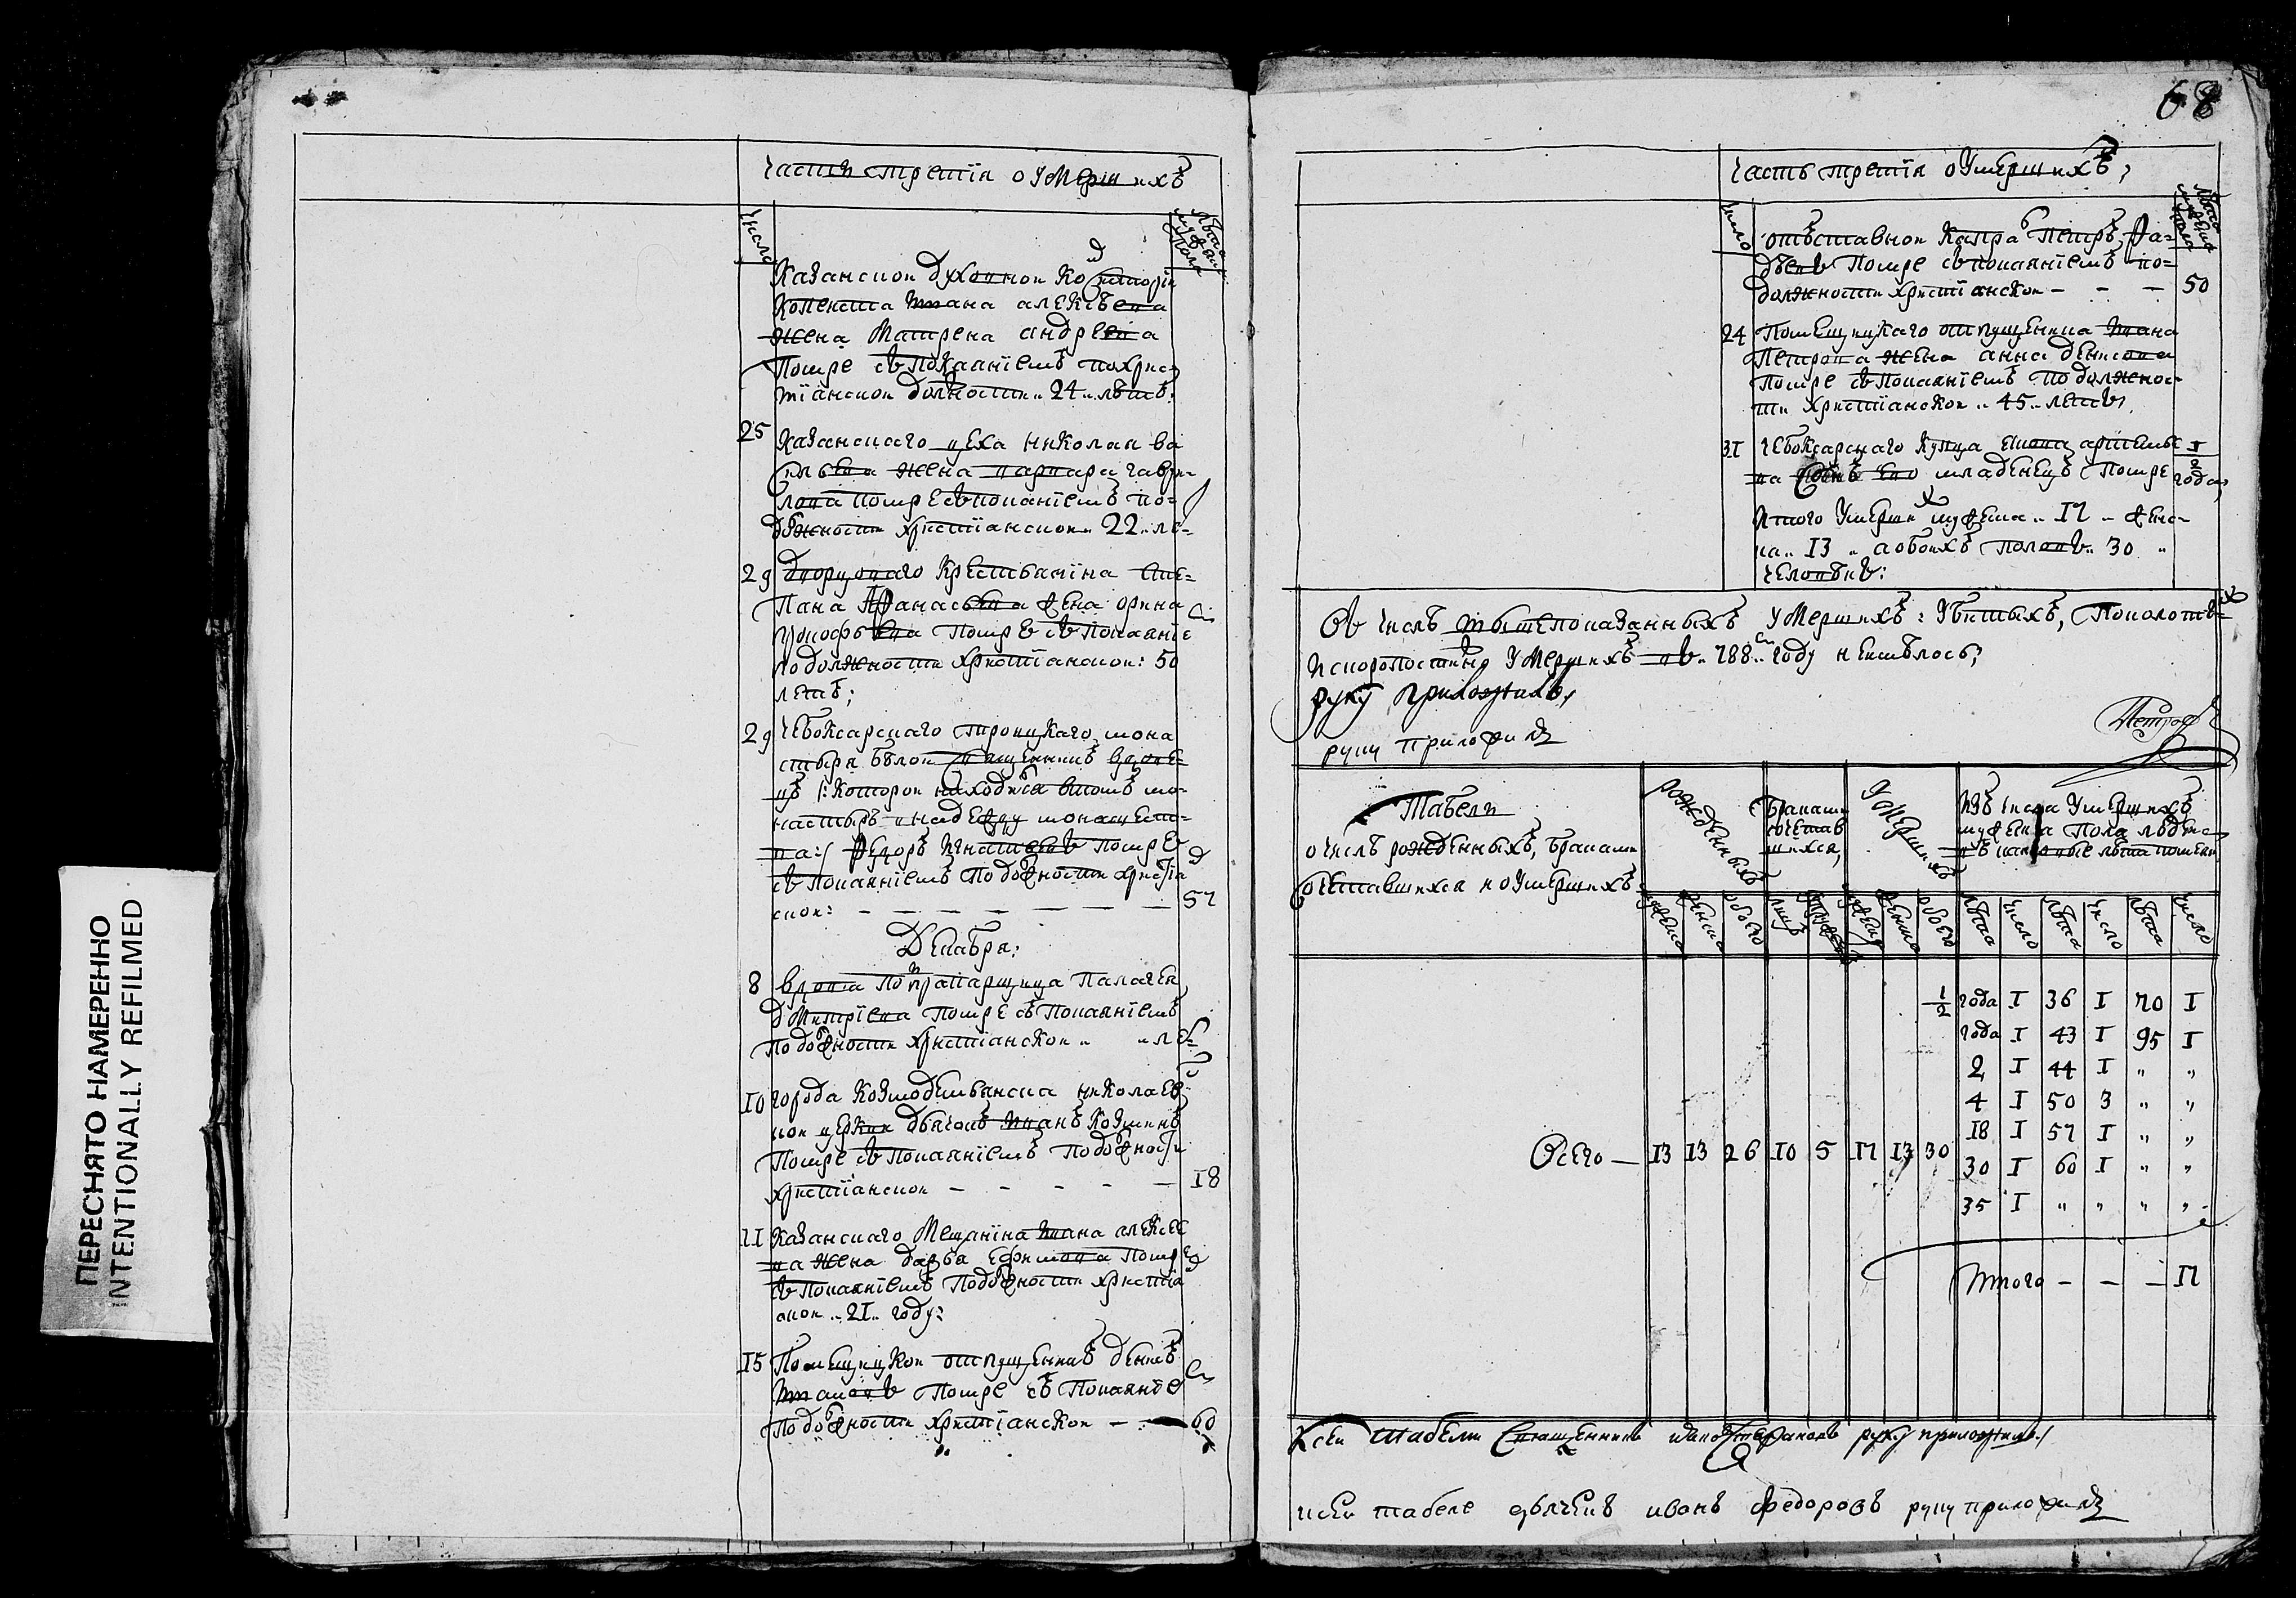 ПЕРЕСНЯТО НАМЕРЕННО
INTENTIONALLY REFILMED
часть третïя о умершихъ
число
лѣта мужеска пола
казанской духовной ко систорïи
копеиста ивана алексѣева
жена матрена андреева
помре съ покаянïемъ по хрис
тïанской должности 24 лѣтъ.
25
казанскаго цеха николая ва
сильева жена варвара гаври
лова помре съ покаянïемъ по
должности христïанской 22 ле
29 дворцоваго крестьянина сте
пана афанасьева жена орина
помре съ покаянïе
по должности христïанской: 50
летъ;
29 чебоксарскаго троицкаго мона
стыря белой священникъ вдове
цъ /: которой находился в томъ мо
настырѣ в надежду монашест
ва :/ федоръ игнатьевъ помре
съ покаянïемъ по должности христïа
ской: — — — — — — — 57
Декабря:
8 вдова попрапорщица палагея
дмитрïева помре съ покаянïемъ
по должности христïанской „ „ ле
10 города козмодемьянска николаев
ской церкви дьячокъ иванъ козминъ
помре съ покаянïемъ по должности
христïанской — — — — — 18
11 казанскаго мещанïна ивана алексее
ва жена дарья ефимова помре
съ покаянïемъ по должности христïа
ской „ 21 „ году:
15 помещицкой отпущенникъ денисъ
ивановъ помре съ покаянïе
по должности христïанской — — 60
68
часть третïя о умершихъ;
число
лѣта мужеска пола
отъставной капра петръ фа
дѣевъ помре съ покаянïемъ по
должности христïанской — — — 50
24 помещицкаго отпущеника ивана
петрова жена анна денисова
помре съ покаянïемъ по должнос
ти христïанской „ 45 „ летъ,
31 чебоксарскаго купца артемье
ва сынъ ево младенецъ помре 1/2 года;
итого умерших мужеска „ 17 „ женс
ка „ 13 „ а обоихъ половъ „ 30 „
человѣкъ:
Въ числѣ вышепоказанныхъ умершихъ: убитыхъ,
и скоропостижно умершихъ въ „ 788 „ году не имѣлось;
руку приложилъ,
Петров
руку приложилъ
Табель
о числѣ рожденныхъ, браками
сочетавшихся и о умершихъ
рожденныхъ
браками сочетав шихся,
умершихъ
Изъ числа умершихъ
мужеска пола людеи
въ каковые лѣта померли
мужеска
женска
обоего
мужеска
женска
обоего
лѣта
число
лѣта
число
лѣта
число
1/2 года 1 36 1 70 1
года 1 43 1 95 1
2 1 44 1 „ „
4 1 50 3 „ „
18 1 57 1 „ „
Всего — 13 13 26 10 5 17 13 30
30 1 60 1 „ „
35 1 „ „ „ „
Итого — — — 17
К сей табели священникъ руку приложилъ
к сей табеле дьячекъ иванъ федоровъ руку приложилъ